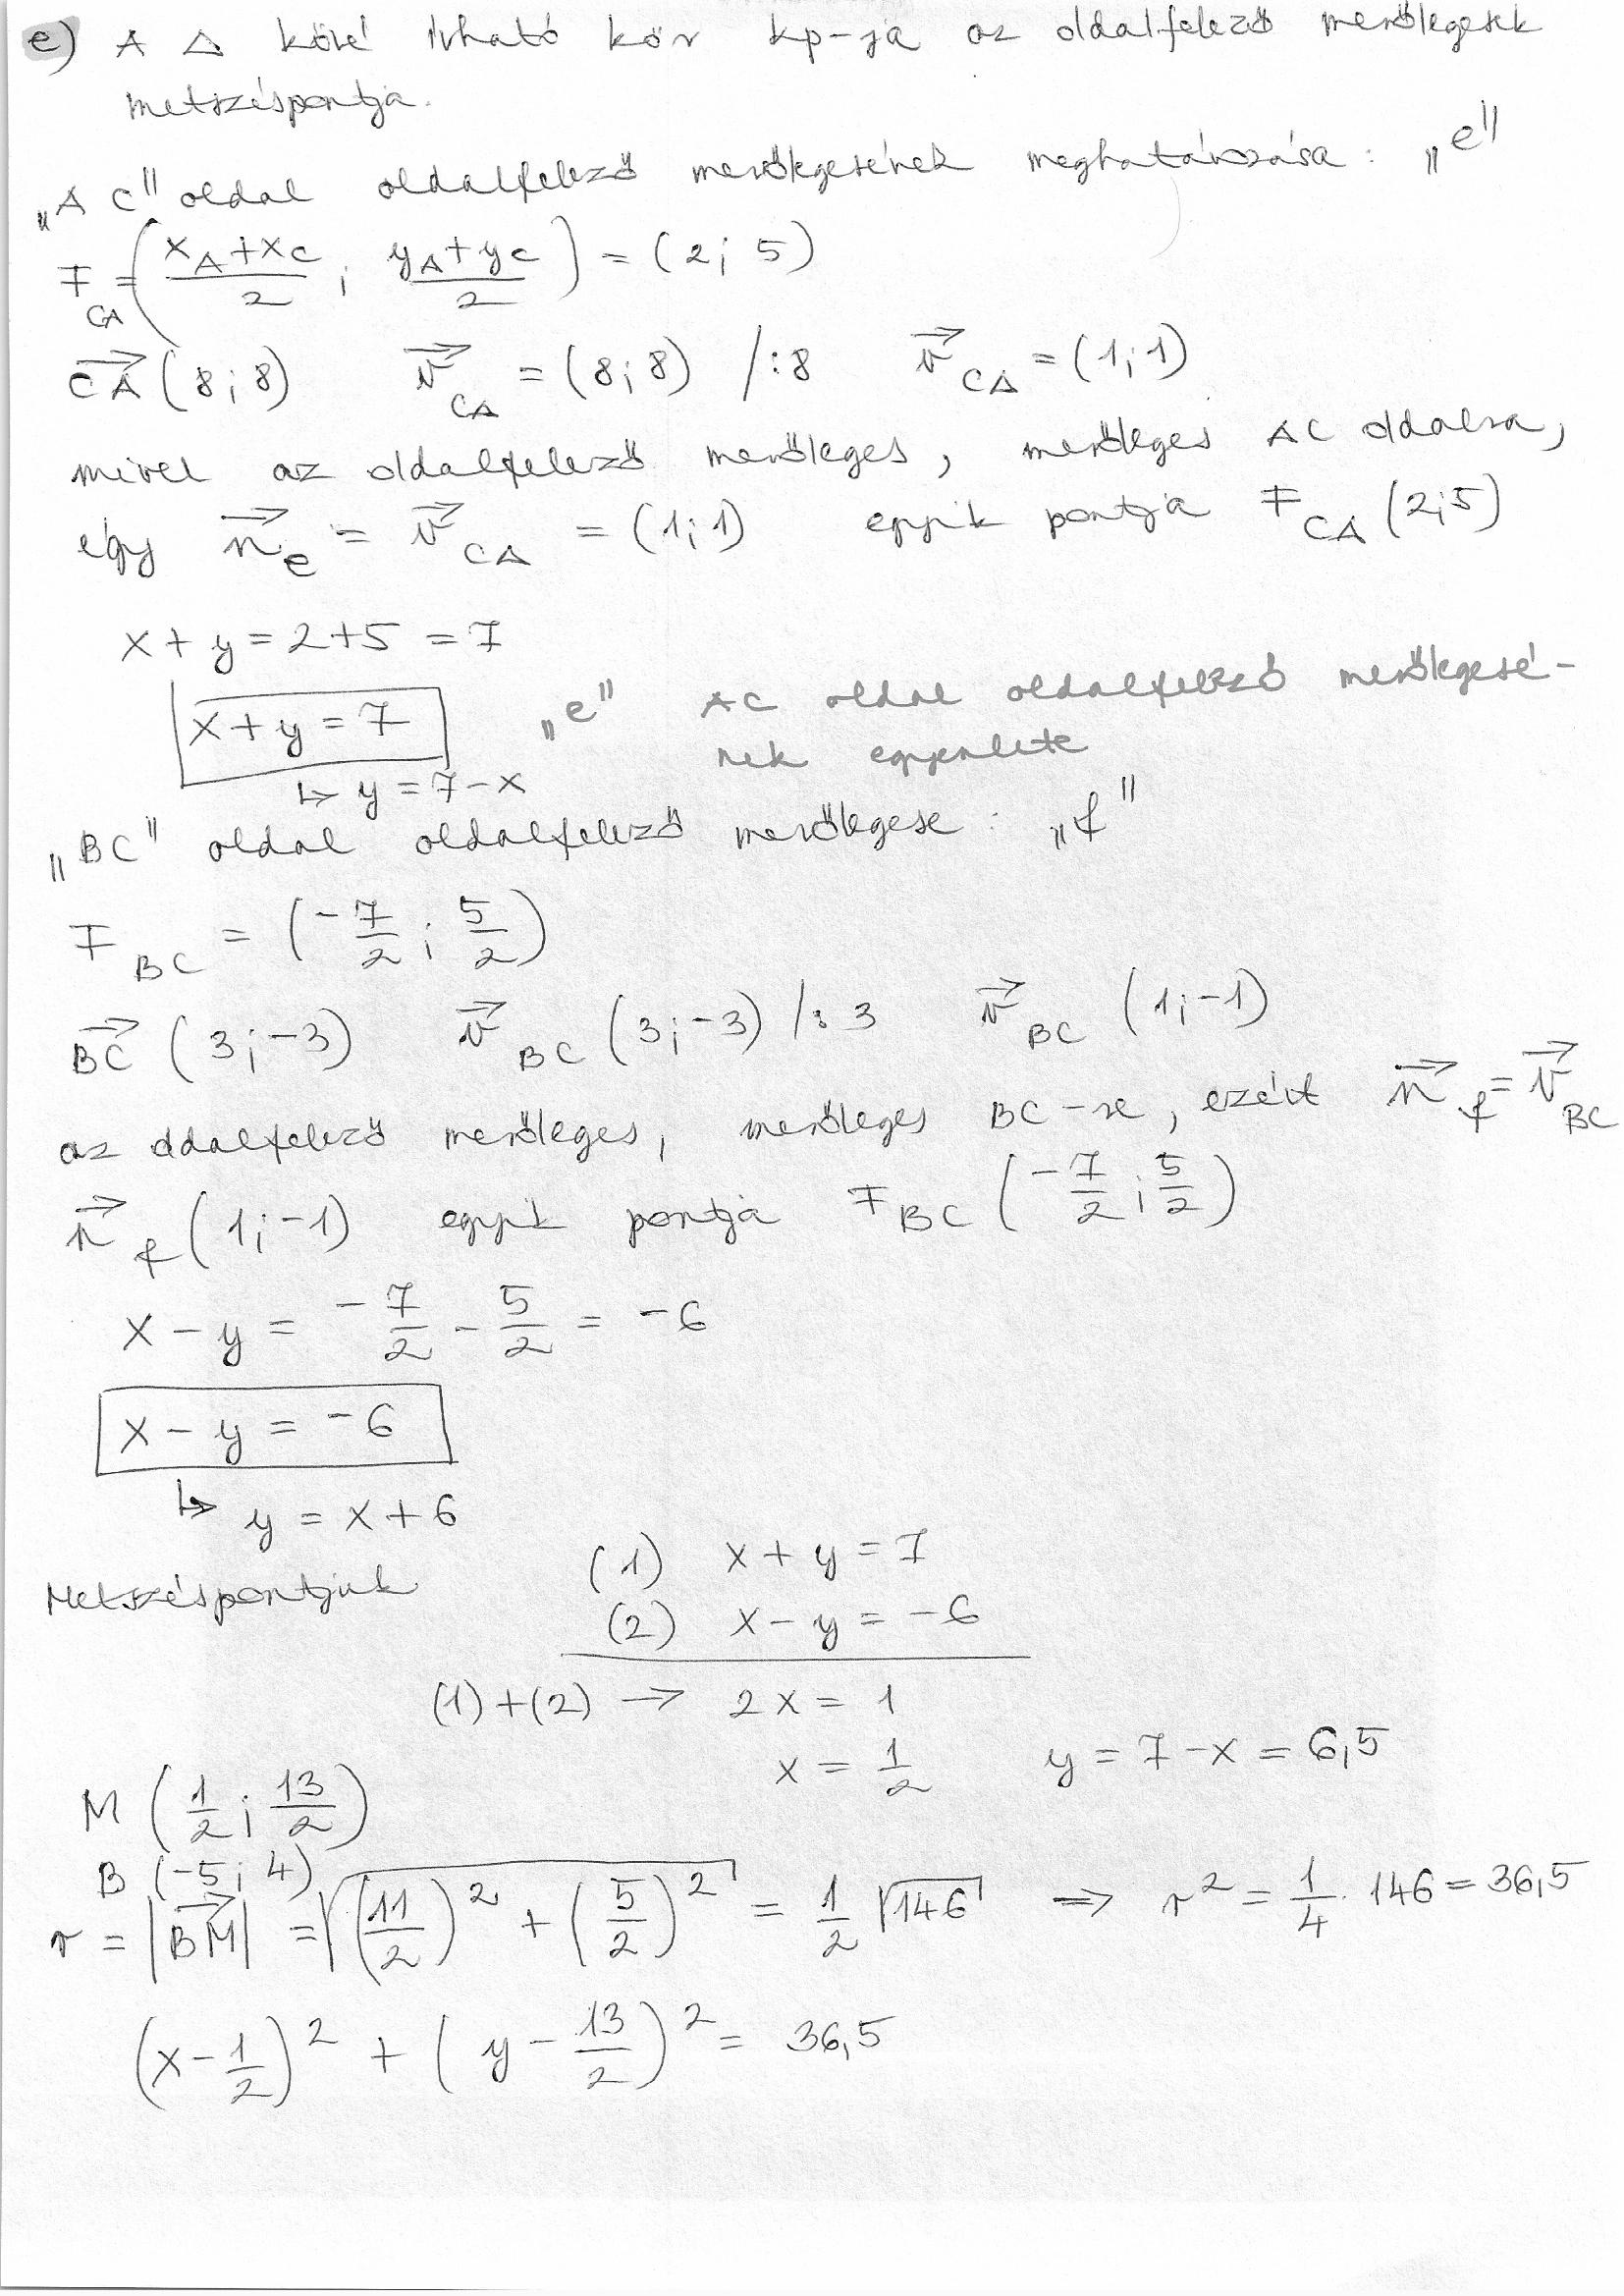 e) A △ köré írható kör kp-ja az oldalfelező merőlegesek
metszéspontja.
„AC" oldal oldalfelező merőlegesének meghatározása: „e"
F_CA = ((x_A + x_C)/2 ; (y_A + y_C)/2) = (2; 5)
CA→ (8; 8) v→_CA = (8; 8) /:8 v→_CA = (1; 1)
mivel az oldalfelező merőleges, merőleges AC oldalra,
így n→_e = v→_CA = (1; 1) egyik pontja F_CA (2; 5)
x + y = 2 + 5 = 7
x + y = 7 „e" AC oldal oldalfelező merőlegesé-
nek egyenlete
↳ y = 7 - x
„BC" oldal oldalfelező merőlegese: „f"
F_BC = (-7/2 ; 5/2)
BC→ (3; -3) v→_BC (3; -3) /:3 v→_BC (1; -1)
az oldalfelező merőleges, merőleges BC-re, ezért n→_f = v→_BC
n→_f (1; -1) egyik pontja F_BC (-7/2 ; 5/2)
x - y = -7/2 - 5/2 = -6
x - y = -6
↳ y = x + 6
Metszéspontjuk
(1) x + y = 7
(2) x - y = -6
(1) + (2) → 2x = 1
x = 1/2 y = 7 - x = 6,5
M (1/2 ; 13/2)
B (-5; 4)
r = |BM→| = √((11/2)² + (5/2)²) = 1/2 √146 ⇒ r² = 1/4 · 146 = 36,5
(x - 1/2)² + (y - 13/2)² = 36,5